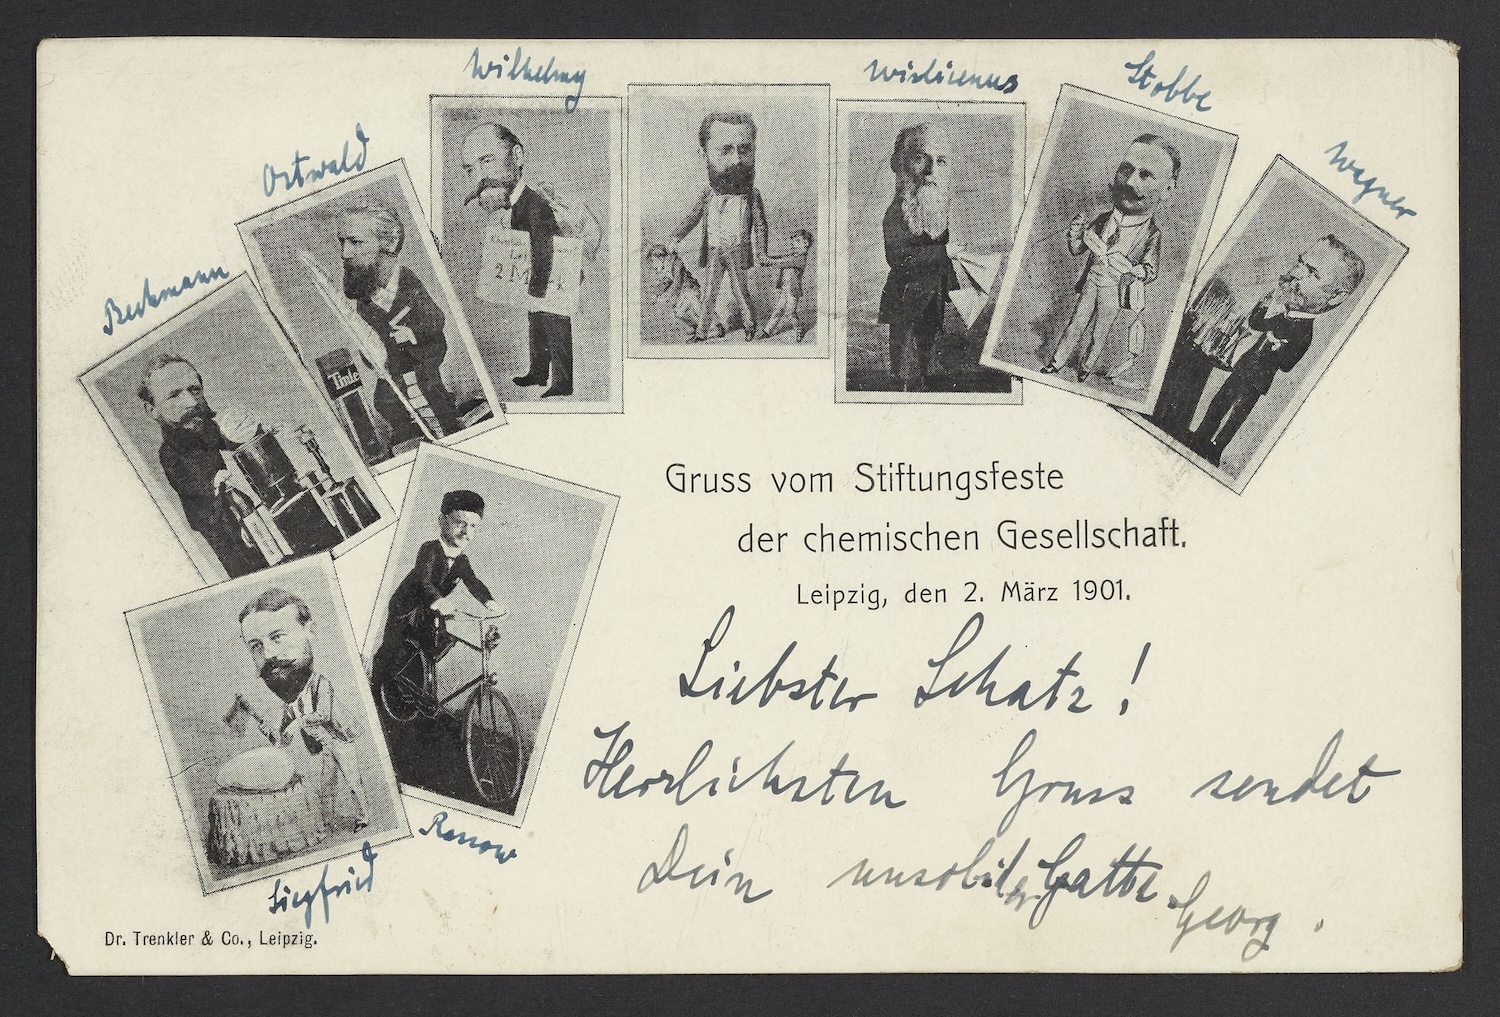 Wilhelmy
Wislicenus
Stobbe
Ostwald
Wegner
Beckmann
2 M
Tinte
Gruss vom Stiftungsfeste
der chemischen Gesellschaft.
Leipzig, den 2. März 1901.
Liebster Schatz!
Herzlichsten Gruss sendet
Dein Gatte
Georg.
Rassow
Siegfried
Dr. Trenkler & Co., Leipzig.